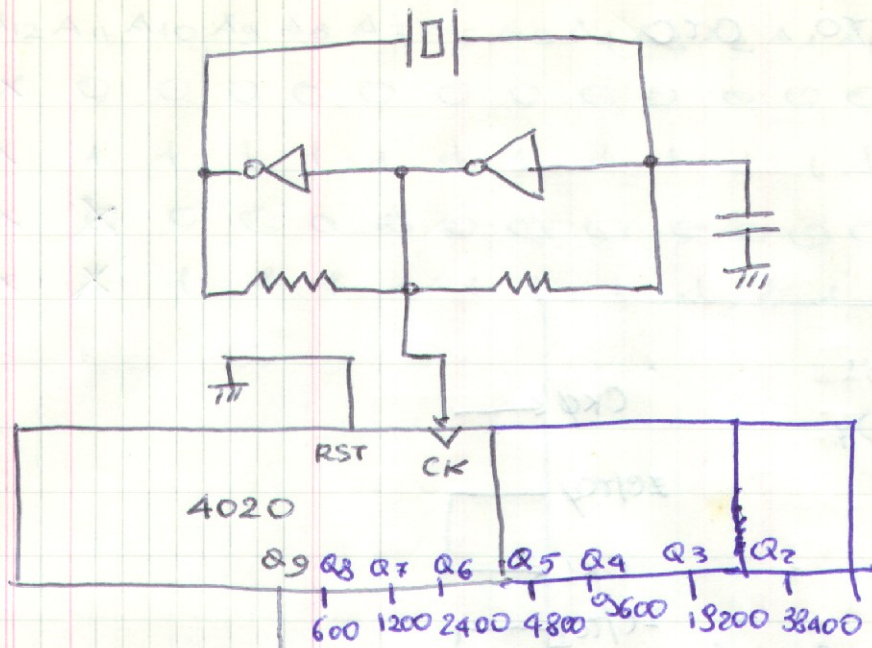 RST CK
4020
Q9 Q8 Q7 Q6 Q5 Q4 Q3 Q2
600 1200 2400 4800 9600 19200 38400